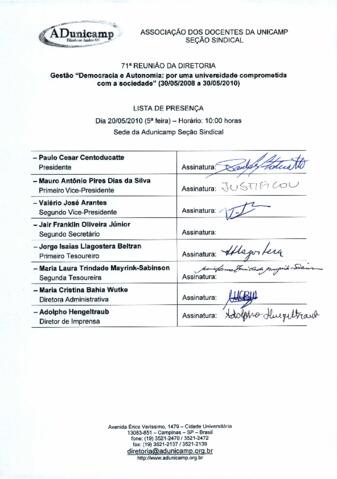 ADunicamp
ASSOCIAÇÃO DOS DOCENTES DA UNICAMP
SEÇÃO SINDICAL
71ª REUNIÃO DA DIRETORIA
Gestão "Democracia e Autonomia: por uma universidade comprometida
com a sociedade" (30/05/2008 a 30/05/2010)
LISTA DE PRESENÇA
Dia 20/05/2010 (5ª feira) – Horário: 10:00 horas
Sede da Adunicamp Seção Sindical
– Paulo Cesar Centoducatte
Presidente
Assinatura:
– Mauro Antônio Pires Dias da Silva
Primeiro Vice-Presidente
Assinatura: JUSTIFICOU
– Valério José Arantes
Segundo Vice-Presidente
Assinatura:
– Jair Franklin Oliveira Júnior
Segundo Secretário
Assinatura:
– Jorge Isaias Llagostera Beltran
Primeiro Tesoureiro
Assinatura: Llagostera
– Maria Laura Trindade Mayrink-Sabinson
Segunda Tesoureira
Assinatura: Maria Laura Trindade Mayrink-Sabinson
– Maria Cristina Bahia Wutke
Diretora Administrativa
Assinatura:
– Adolpho Hengeltraub
Diretor de Imprensa
Assinatura: Adolpho Hengeltraub
Avenida Érico Veríssimo, 1479 – Cidade Universitária
13083-851 – Campinas – SP – Brasil
fone: (19) 3521-2470 / 3521-2472
fax: (19) 3521-2137 / 3521-2139
diretoria@adunicamp.org.br
http://www.adunicamp.org.br